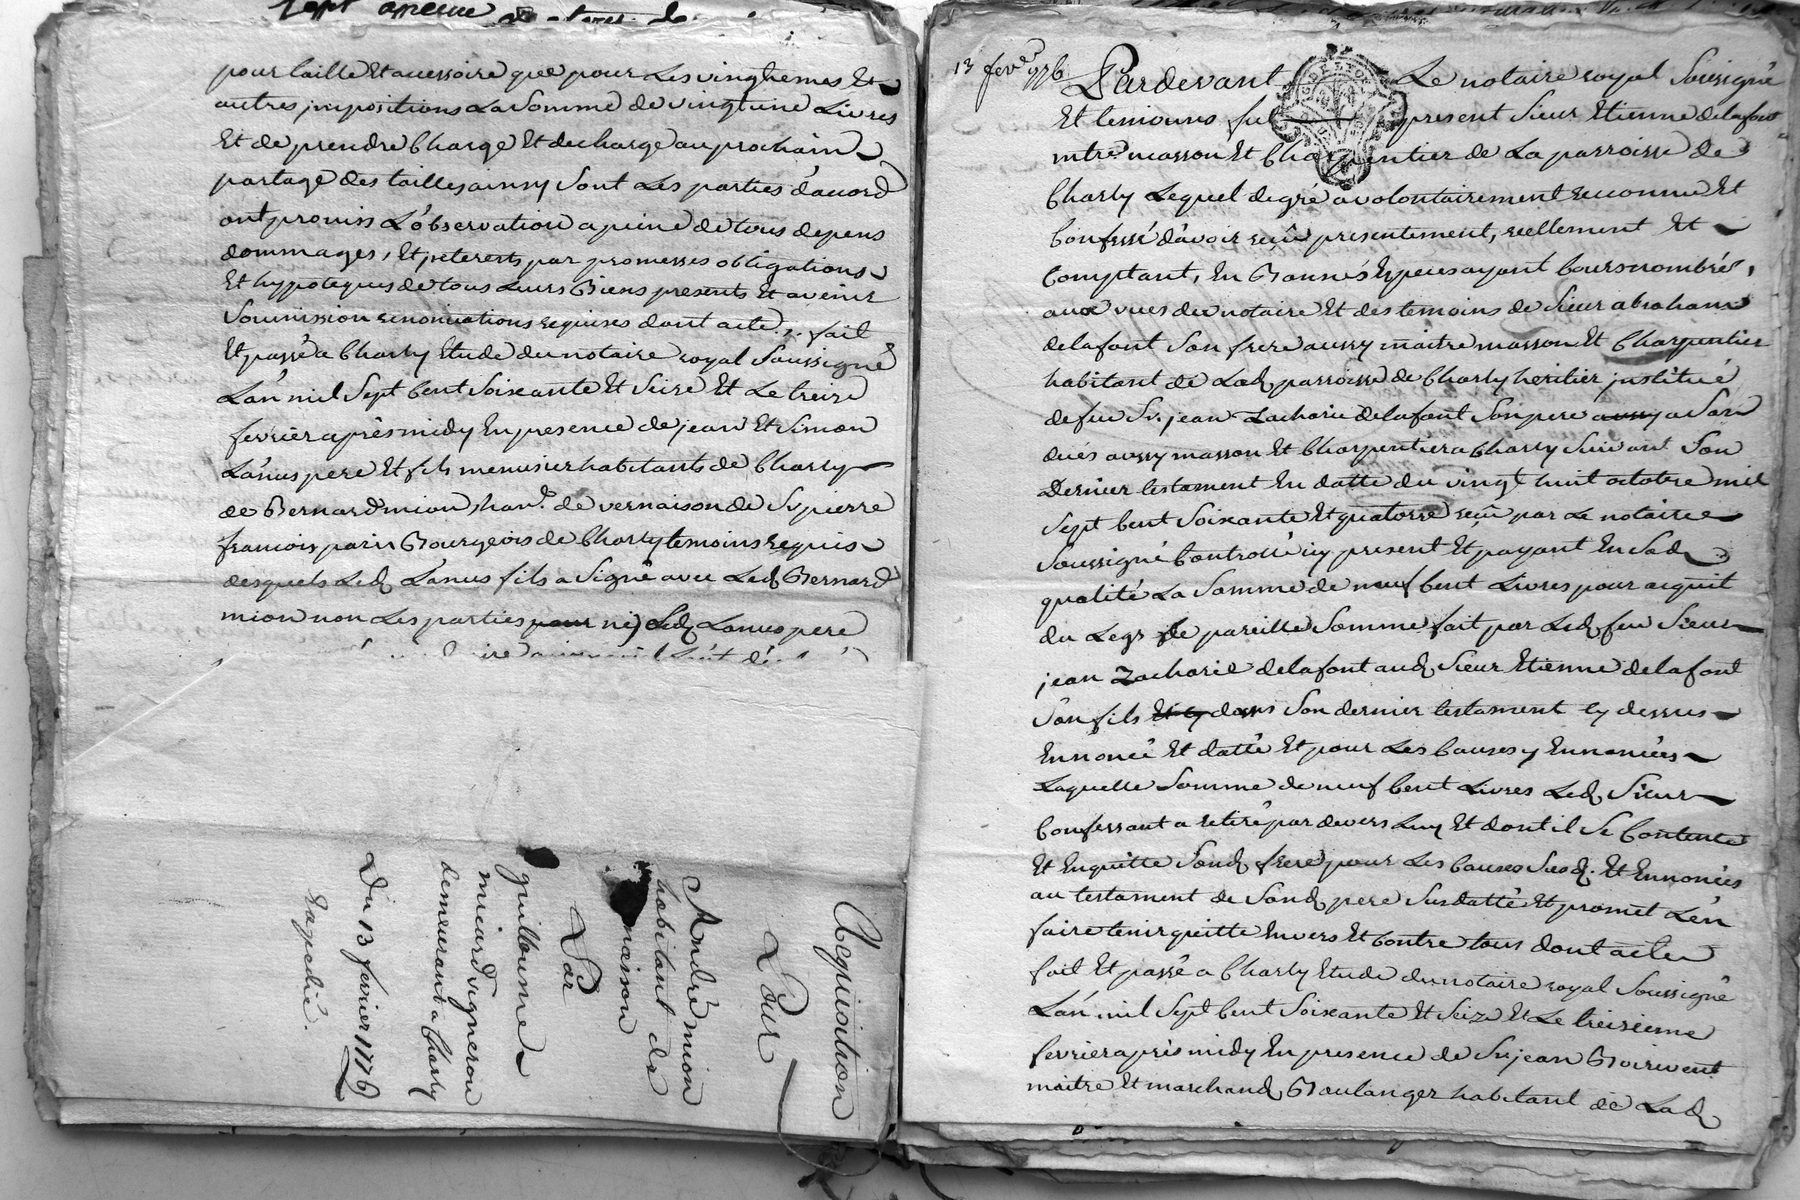 pour taille et accessoire que pour les vingtiemes et
autres jmpositions la somme de vingt une livres
et de prendre charge et decharge au prochain
partage des tailles ainsy sont les parties d'accord
ont promis l'observation a peine de tous depens
dommages, et jnterests, par promesses obligations
et hypoteques de tous leurs biens presents et avenir
soumission renonciations requises dont acte fait
et passé a Charly etude du notaire royal soussigné
l'an mil sept cent soixante et seize et le treize
fevrier après midy en presence de jean et simon
Lanus pere et fils menusier habitants de Charly
de Bernard mion, han.t de vernaison de Sr pierre
francois paris Bourgeois de Charly temoins requis
desquels led. Lanus fils a signé avec led. Bernard
mion non les parties pour ni led. Lanus pere
Acquisition
Pour
André mion
habitant de
naison
Par
guillaume
micard vigneron
demeurant a Charly
Du 13 fevrier 1776
Expedié.
13 fev.er 1776
Pardevant Le notaire royal soussigné
et temoins fut present sieur Etienne delafont
mtre masson et Charpentier de la parroisse de
Charly lequel de gré a volontairement reconnu et
confessé d'avoir reçû presentement, reellement et
comptant, en bonnes especes ayant cours nombrées,
aux vues du notaire et des temoins de sieur abraham
delafont son frere aussy maitre masson et Charpentier
habitant de lad. parroisse de Charly heritier jnstitué
de feu Sr. jean Zacharie delafont son pere aussy a son
decés aussy masson et Charpentier a Charly suivant son
dernier testament en datte du vingt huit octobre mil
sept cent soixante et quatorze reçû par le notaire
soussigné controllé icy present et payant en sad.
qualité la somme de neuf cent livres pour acquit
du legs de pareille somme fait par led. feu sieur
jean Zacharie delafont aud. sieur Etienne delafont
son fils et cy dans son dernier testament cy dessus
ennoncé et datté et pour les causes y ennoncées
laquelle somme de neuf cent livres led. sieur
confessant a retiré par devers luy et dont il se contente
et en quitte sond. frere pour les causes susd. et ennoncées
au testament de sond. pere susdatté et promet l'en
faire tenir quitte envers et contre tous dont acte
fait et passé a Charly etude du notaire royal soussigné
l'an mil sept cent soixante et seize et le treizieme
fevrier après midy en presence de Sr jean Boirivent
maitre et marchand Boulanger habitant de lad.